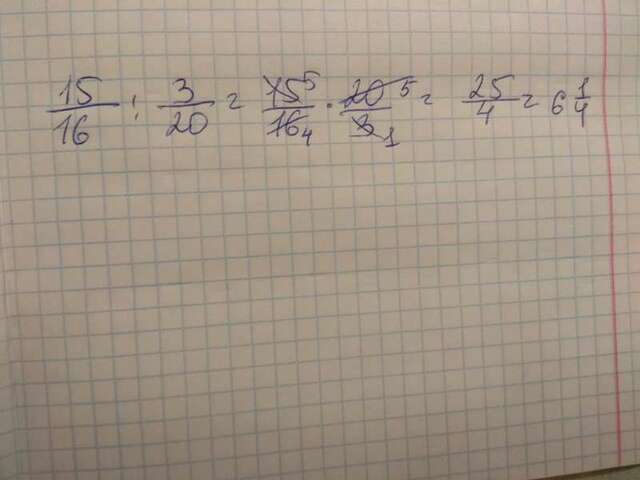 15/16 : 3/20 = 15 5/16 4 · 20 5/3 1 = 25/4 = 6 1/4